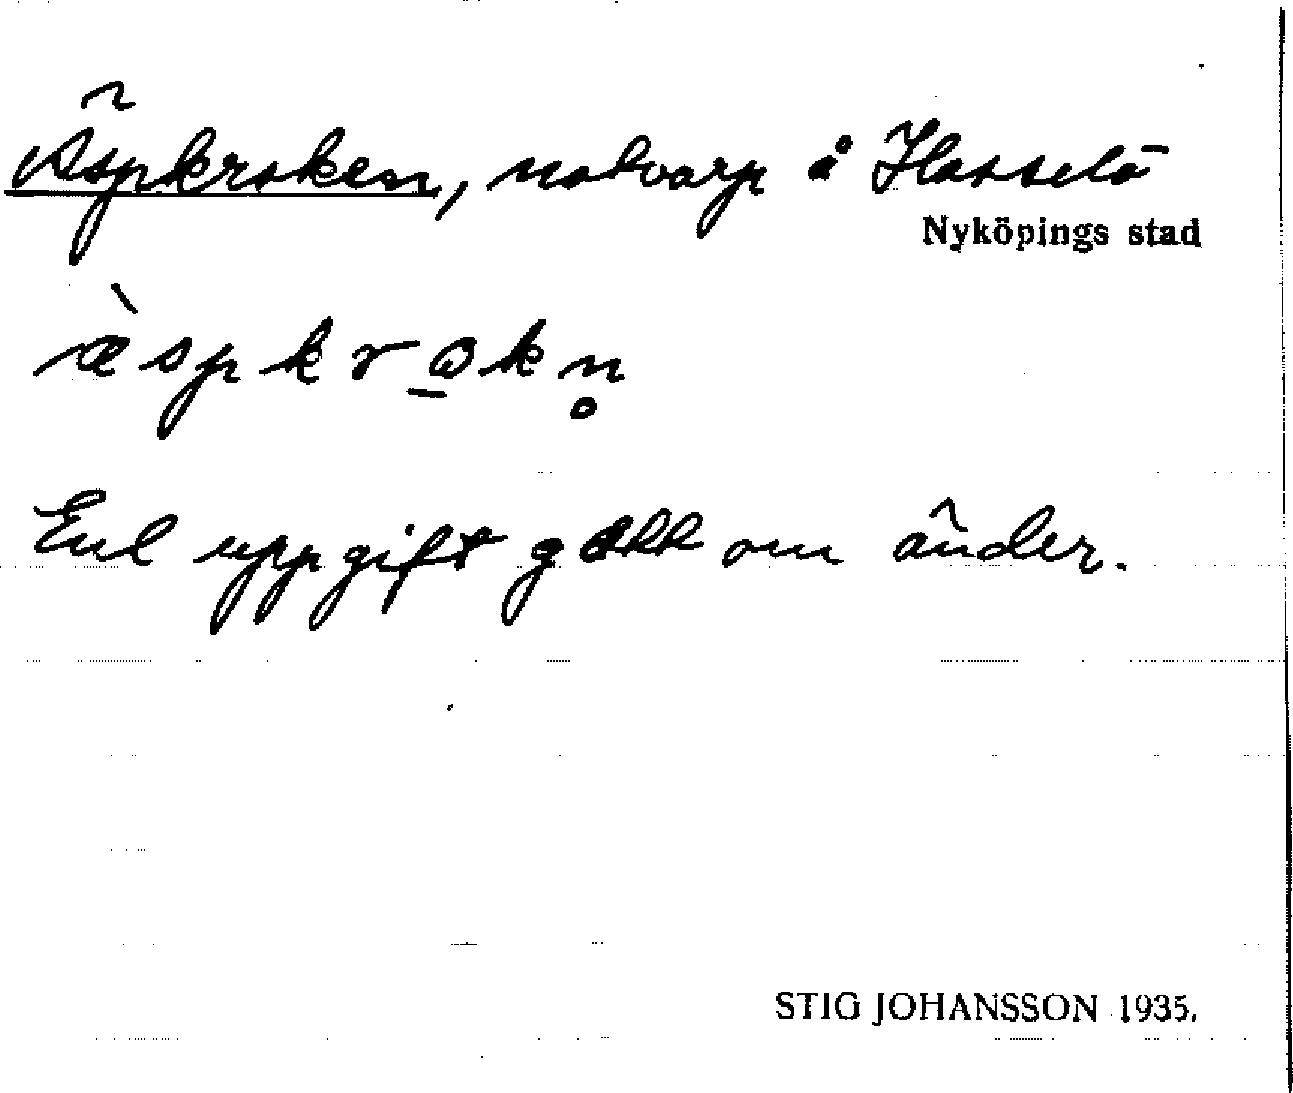 Äspkroken, notvarp å Hasselö
Nyköpings stad
æ̀spkro̲kn̥
Enl uppgift gökk om änder.
STIG JOHANSSON 1935.